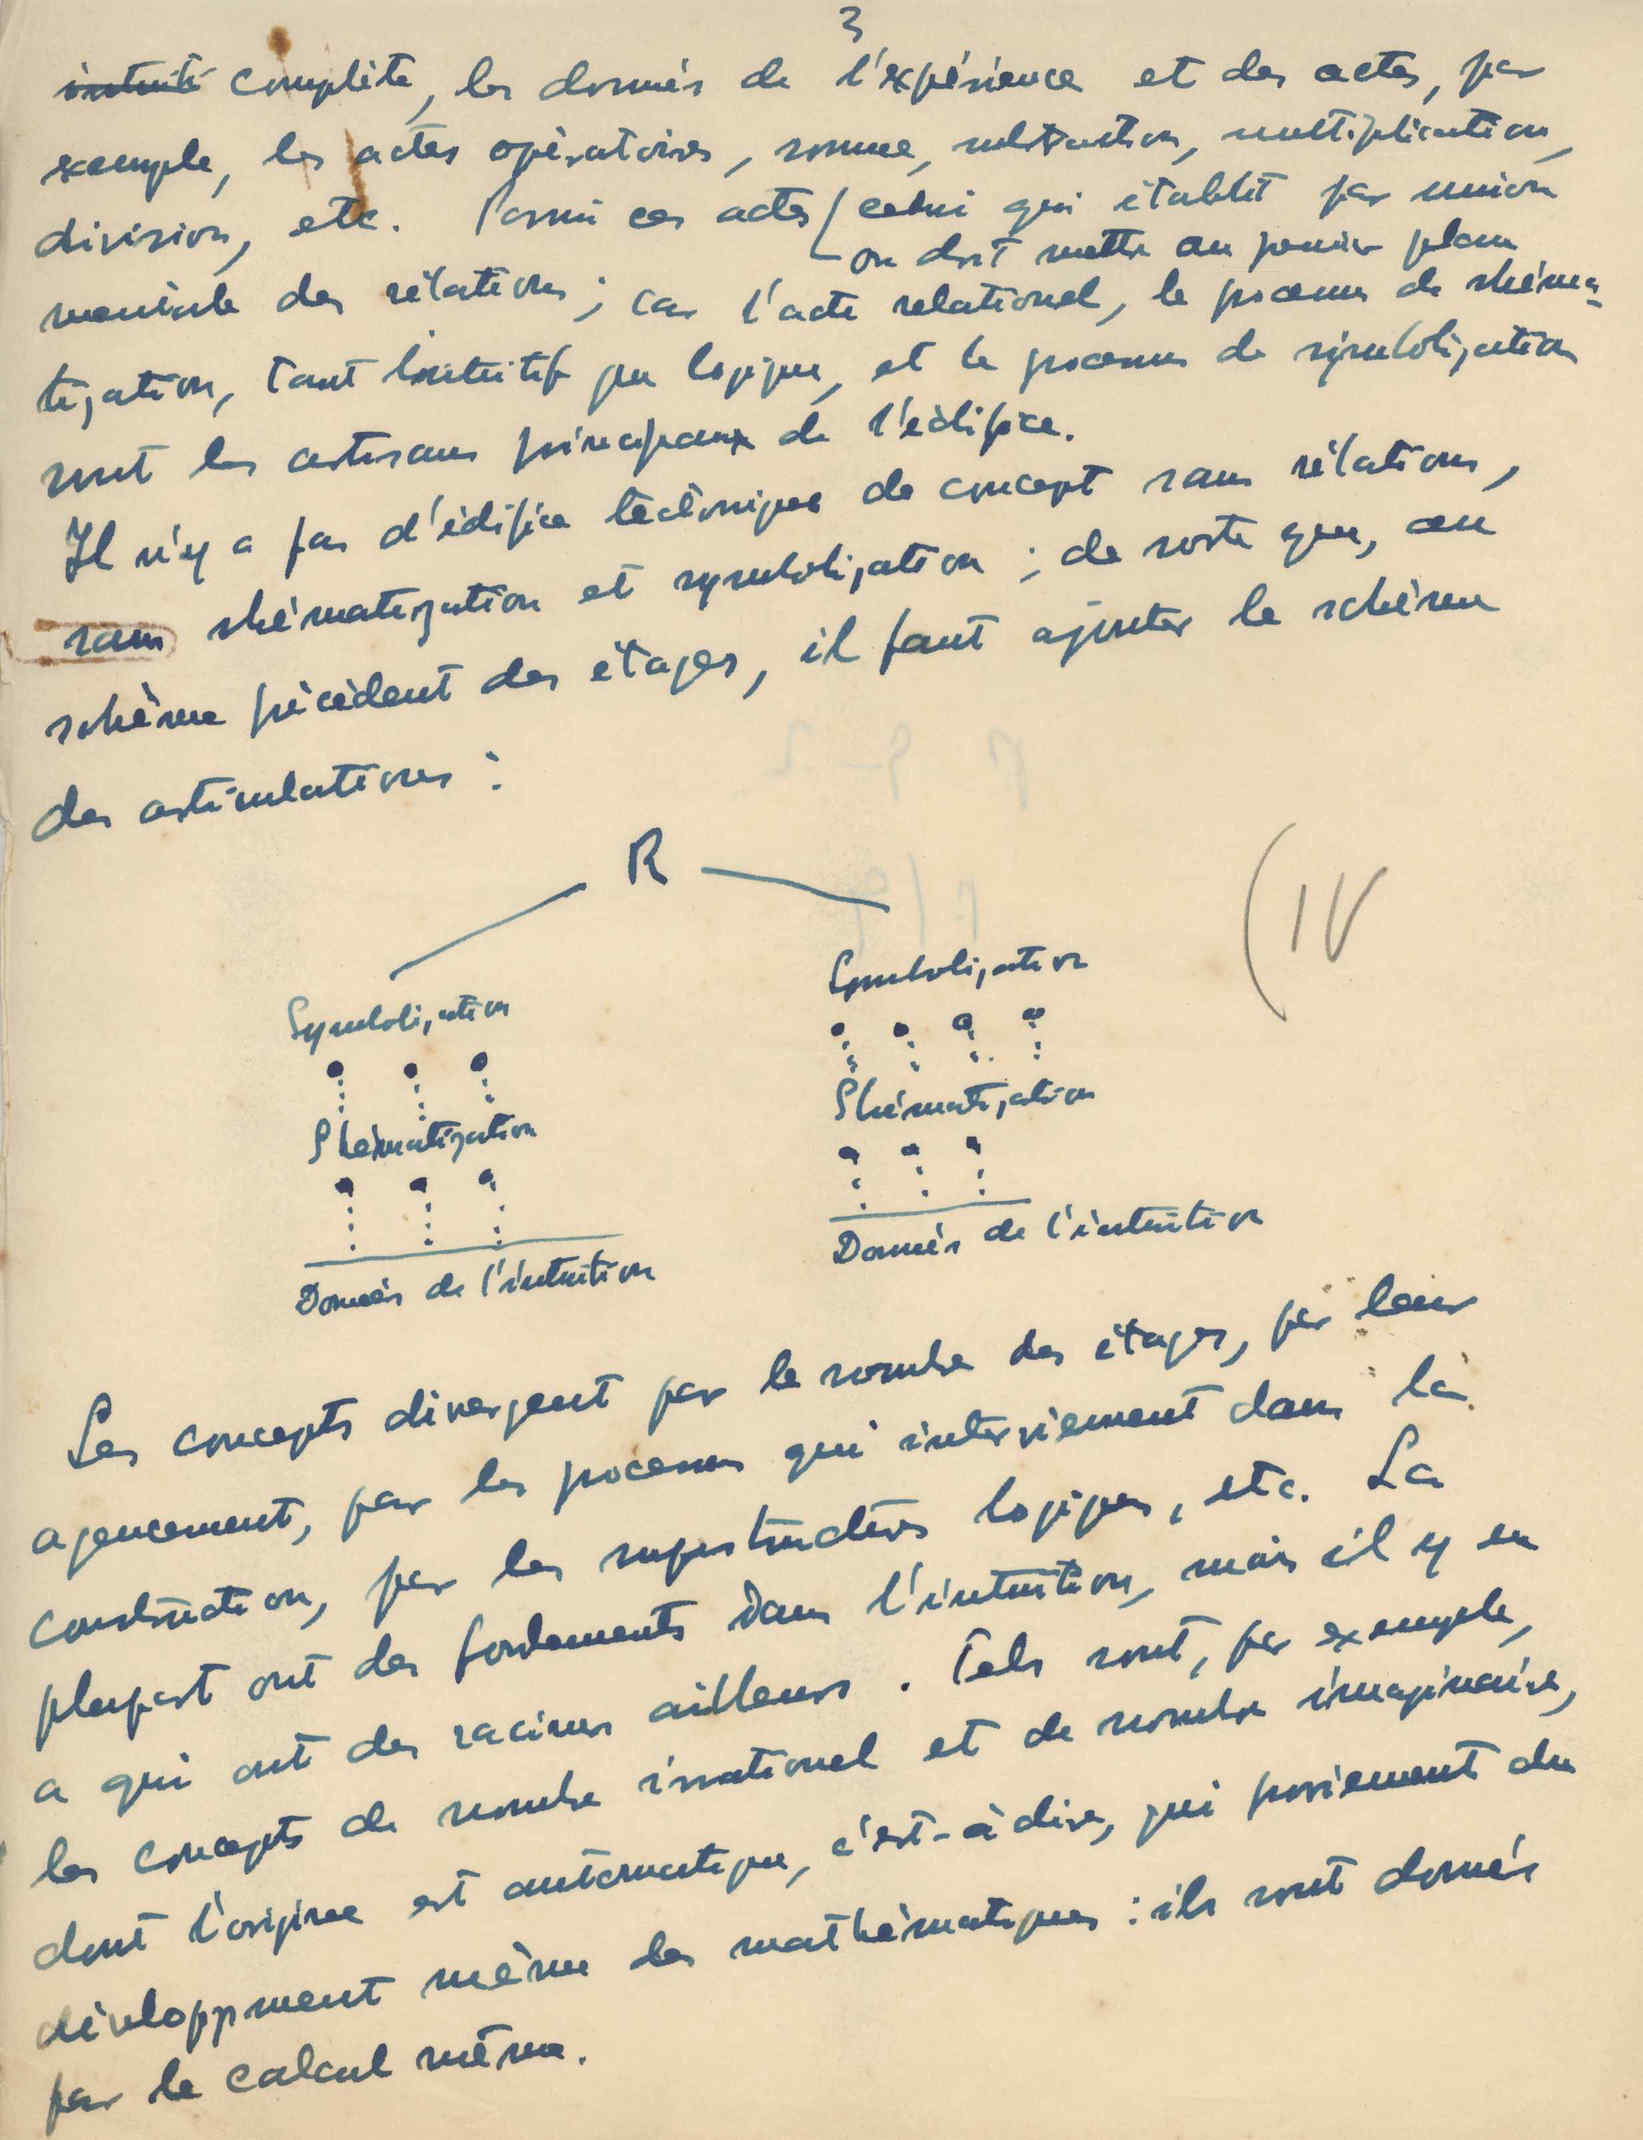 3
intuité complète, les donnés de l'expérience et des actes, par
exemple, les actes opératoires, somme, substraction, multiplication,
division, etc. Parmi ces actes celui qui établit par union
on doit mettre au premier plan
mentale des rélations; car l'acte relationel, le processus de shéma-
tization, tant l'intuitif que logique, et le processus de symbolization
sont les artisans principaux de l'édifice.
Il n'y a pas d'édifice tectonique de concept sans rélations,
sans shématization et symbolization; de sorte que, au
schème précédent des étages, il faut ajouter le schème
des articulations:
R
(IV
Symbolization
Symbolization
Shématization
Shématization
Donnés de l'intuition
Donnés de l'intuition
Les concepts divergent par le nombre des étages, par leur
agencement, par les processus qui interviement dans la
construction, par les superstructures logiques, etc. La
plupart ont des fondements dans l'intuition, mais il y en
a qui ont des racines ailleurs. Tels sont, par exemple,
les concepts de nombre irrationel et de nombre imaginaire,
dont l'origine est automatique, c'est-à dire, qui proviement du
développment même des mathématiques: ils sont donnés
par le calcul même.